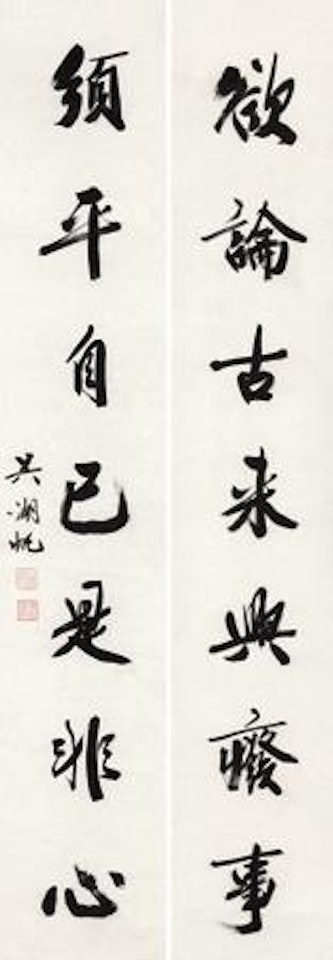 欲論古来興癈事
須平自己是非心
吳湖帆